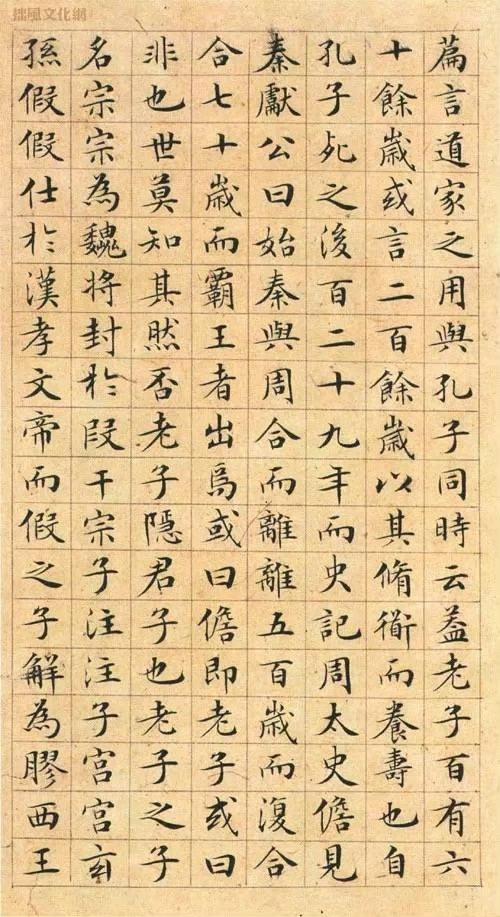 拙風文化網
篇言道家之用與孔子同時云葢老子百有六
十餘歲或言二百餘歲以其脩衜而養壽也自
孔子死之後百二十九年而史記周太史儋見
秦獻公曰始秦與周合而離離五百歲而復合
合七十歲而霸王者出焉或曰儋即老子或曰
非也世莫知其然否老子隱君子也老子之子
名宗宗為魏將封於段干宗子注注子宮宮玄
孫假假仕於漢孝文帝而假之子解為膠西王